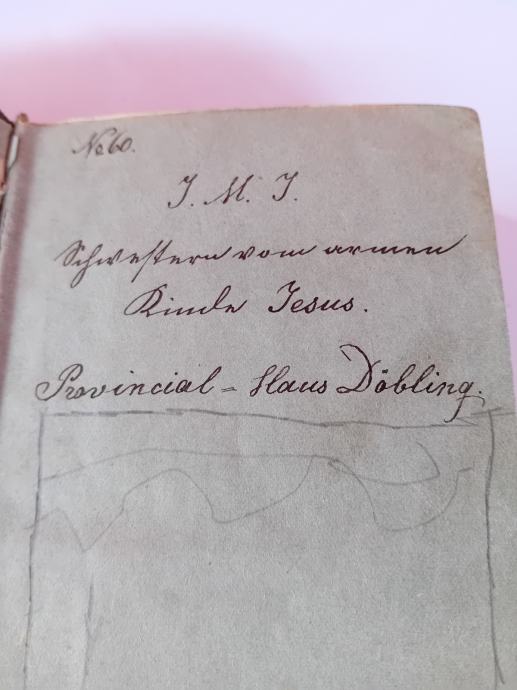 No 60.
J. M. J.
Schwestern vom armen
Kinde Jesus.
Provincial-Haus Döbling.